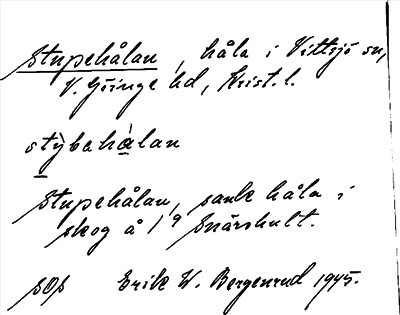 Stupehålan, håla i Vittsjö sn,
V. Göinge hd, Krist. l.
stỳbahàlan
Stupehålan, sank håla i
skog å 1⁹ Snärshult.
sOs Erik W. Bergenrud 1945.